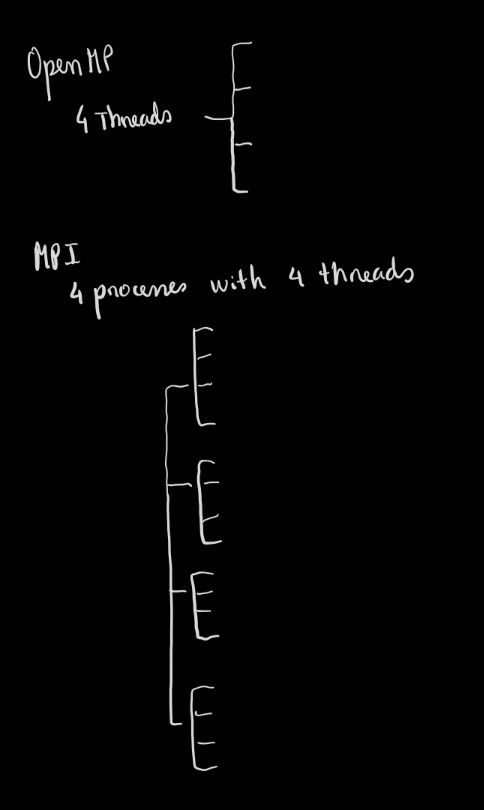 OpenMP
4 Threads
MPI
4 processes with 4 threads